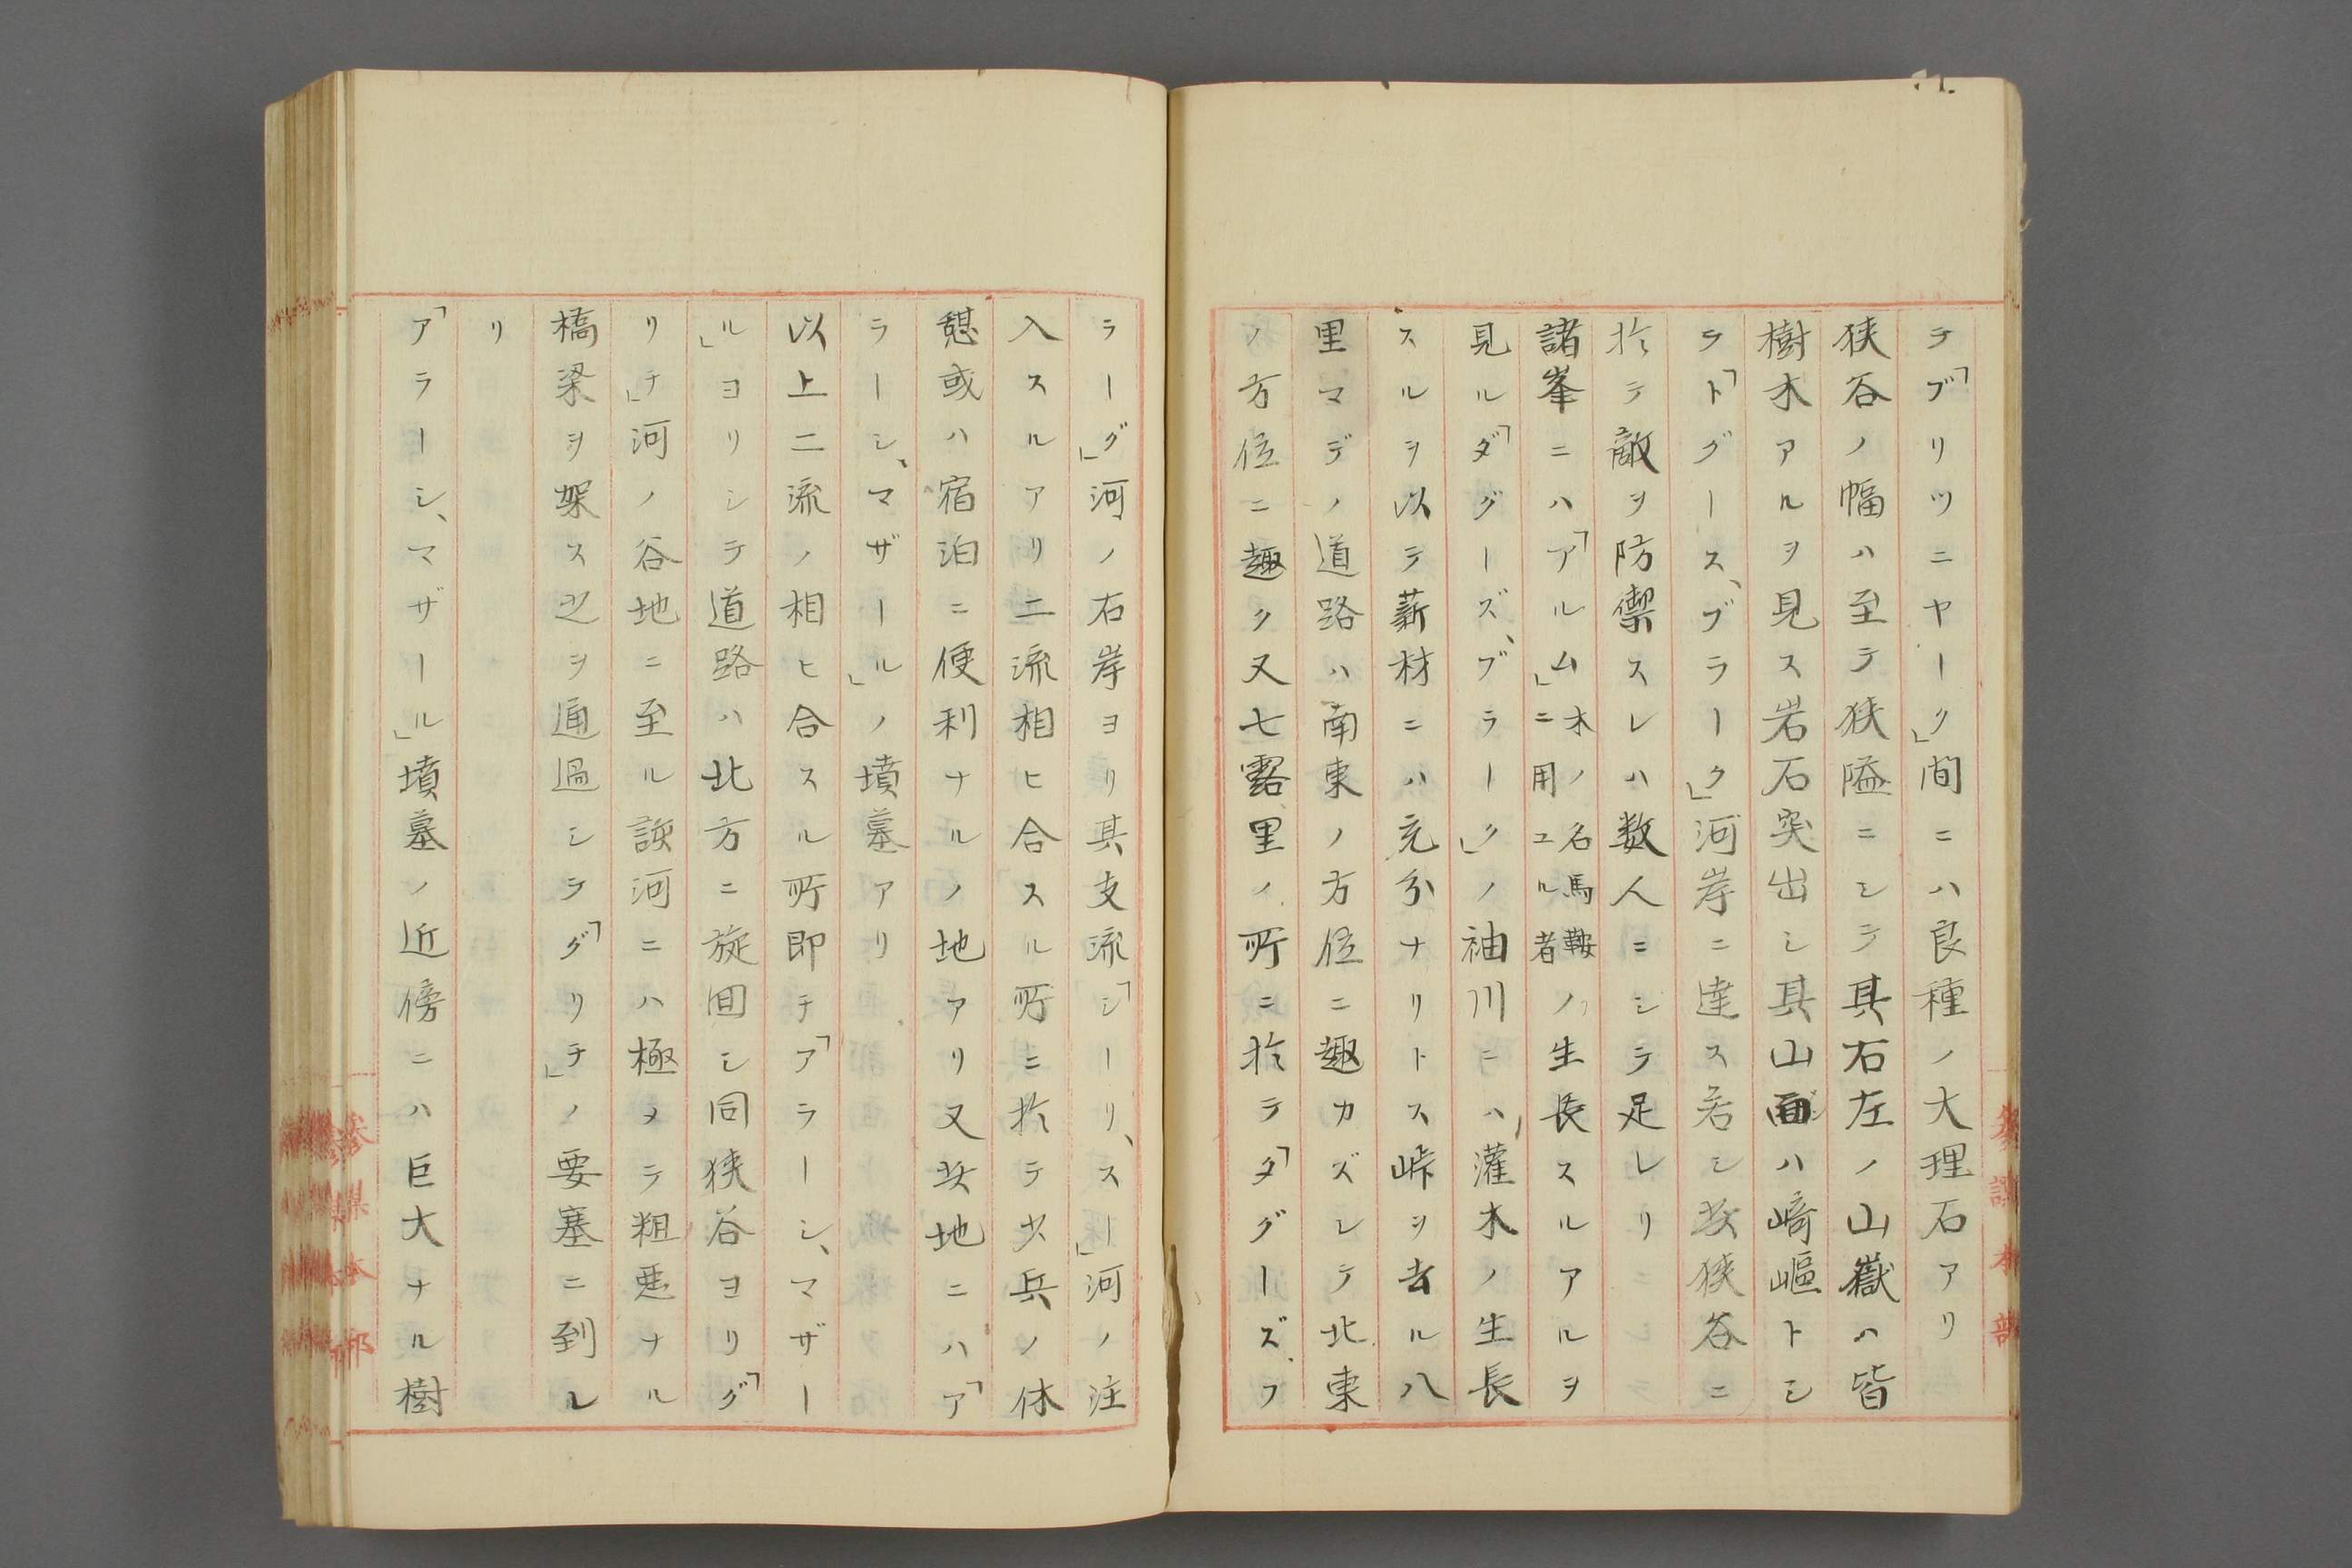 テ「ブリツニヤーク」間ニハ良種ノ大理石アリ
狭谷ノ幅ハ至テ狭隘ニシテ其右左ノ山嶽ハ皆
樹木アルヲ見ス岩石突出シ其山面ハ崎嶇トシ
テ「トグース、ブラーク」河岸ニ達ス若シ玆狭谷ニ
於テ敵ヲ防禦スレハ数人ニシテ足レリ
諸峯ニハ「アルム」木ノ名馬鞍ニ用ユル者ノ生長スルアルヲ
見ル「ダグーズ、ブラーク」ノ袖川ニハ灌木ノ生長
スルヲ以テ薪材ニハ充分ナリトス峠ヲ去ル八
里マデノ道路ハ南東ノ方位ニ趣カズシテ北東
ノ方位ニ趣ク又七露里ノ所ニ於テ「タグーズ、フ
ラーグ」河ノ右岸ヨリ其支流「シーリ、スー」河ノ注
入スルアリ二流相ヒ合スル所ニ於テ少兵ノ休
憩或ハ宿泊ニ便利ナルノ地アリ又玆地ニハ「ア
ラーシ、マザール」ノ墳墓アリ
以上二流ノ相ヒ合スル所即チ「アラーシ、マザー
ル」ヨリシテ道路ハ北方ニ旋回シ同狭谷ヨリ「グ
リチ」河ノ谷地ニ至ル該河ニハ極メテ粗悪ナル
橋梁ヲ架ス之ヲ通過シテ「グリチ」ノ要塞ニ到レ
リ
「アラーシ、マザール」墳墓ノ近傍ニハ巨大ナル樹
參謀本部
參謀本部